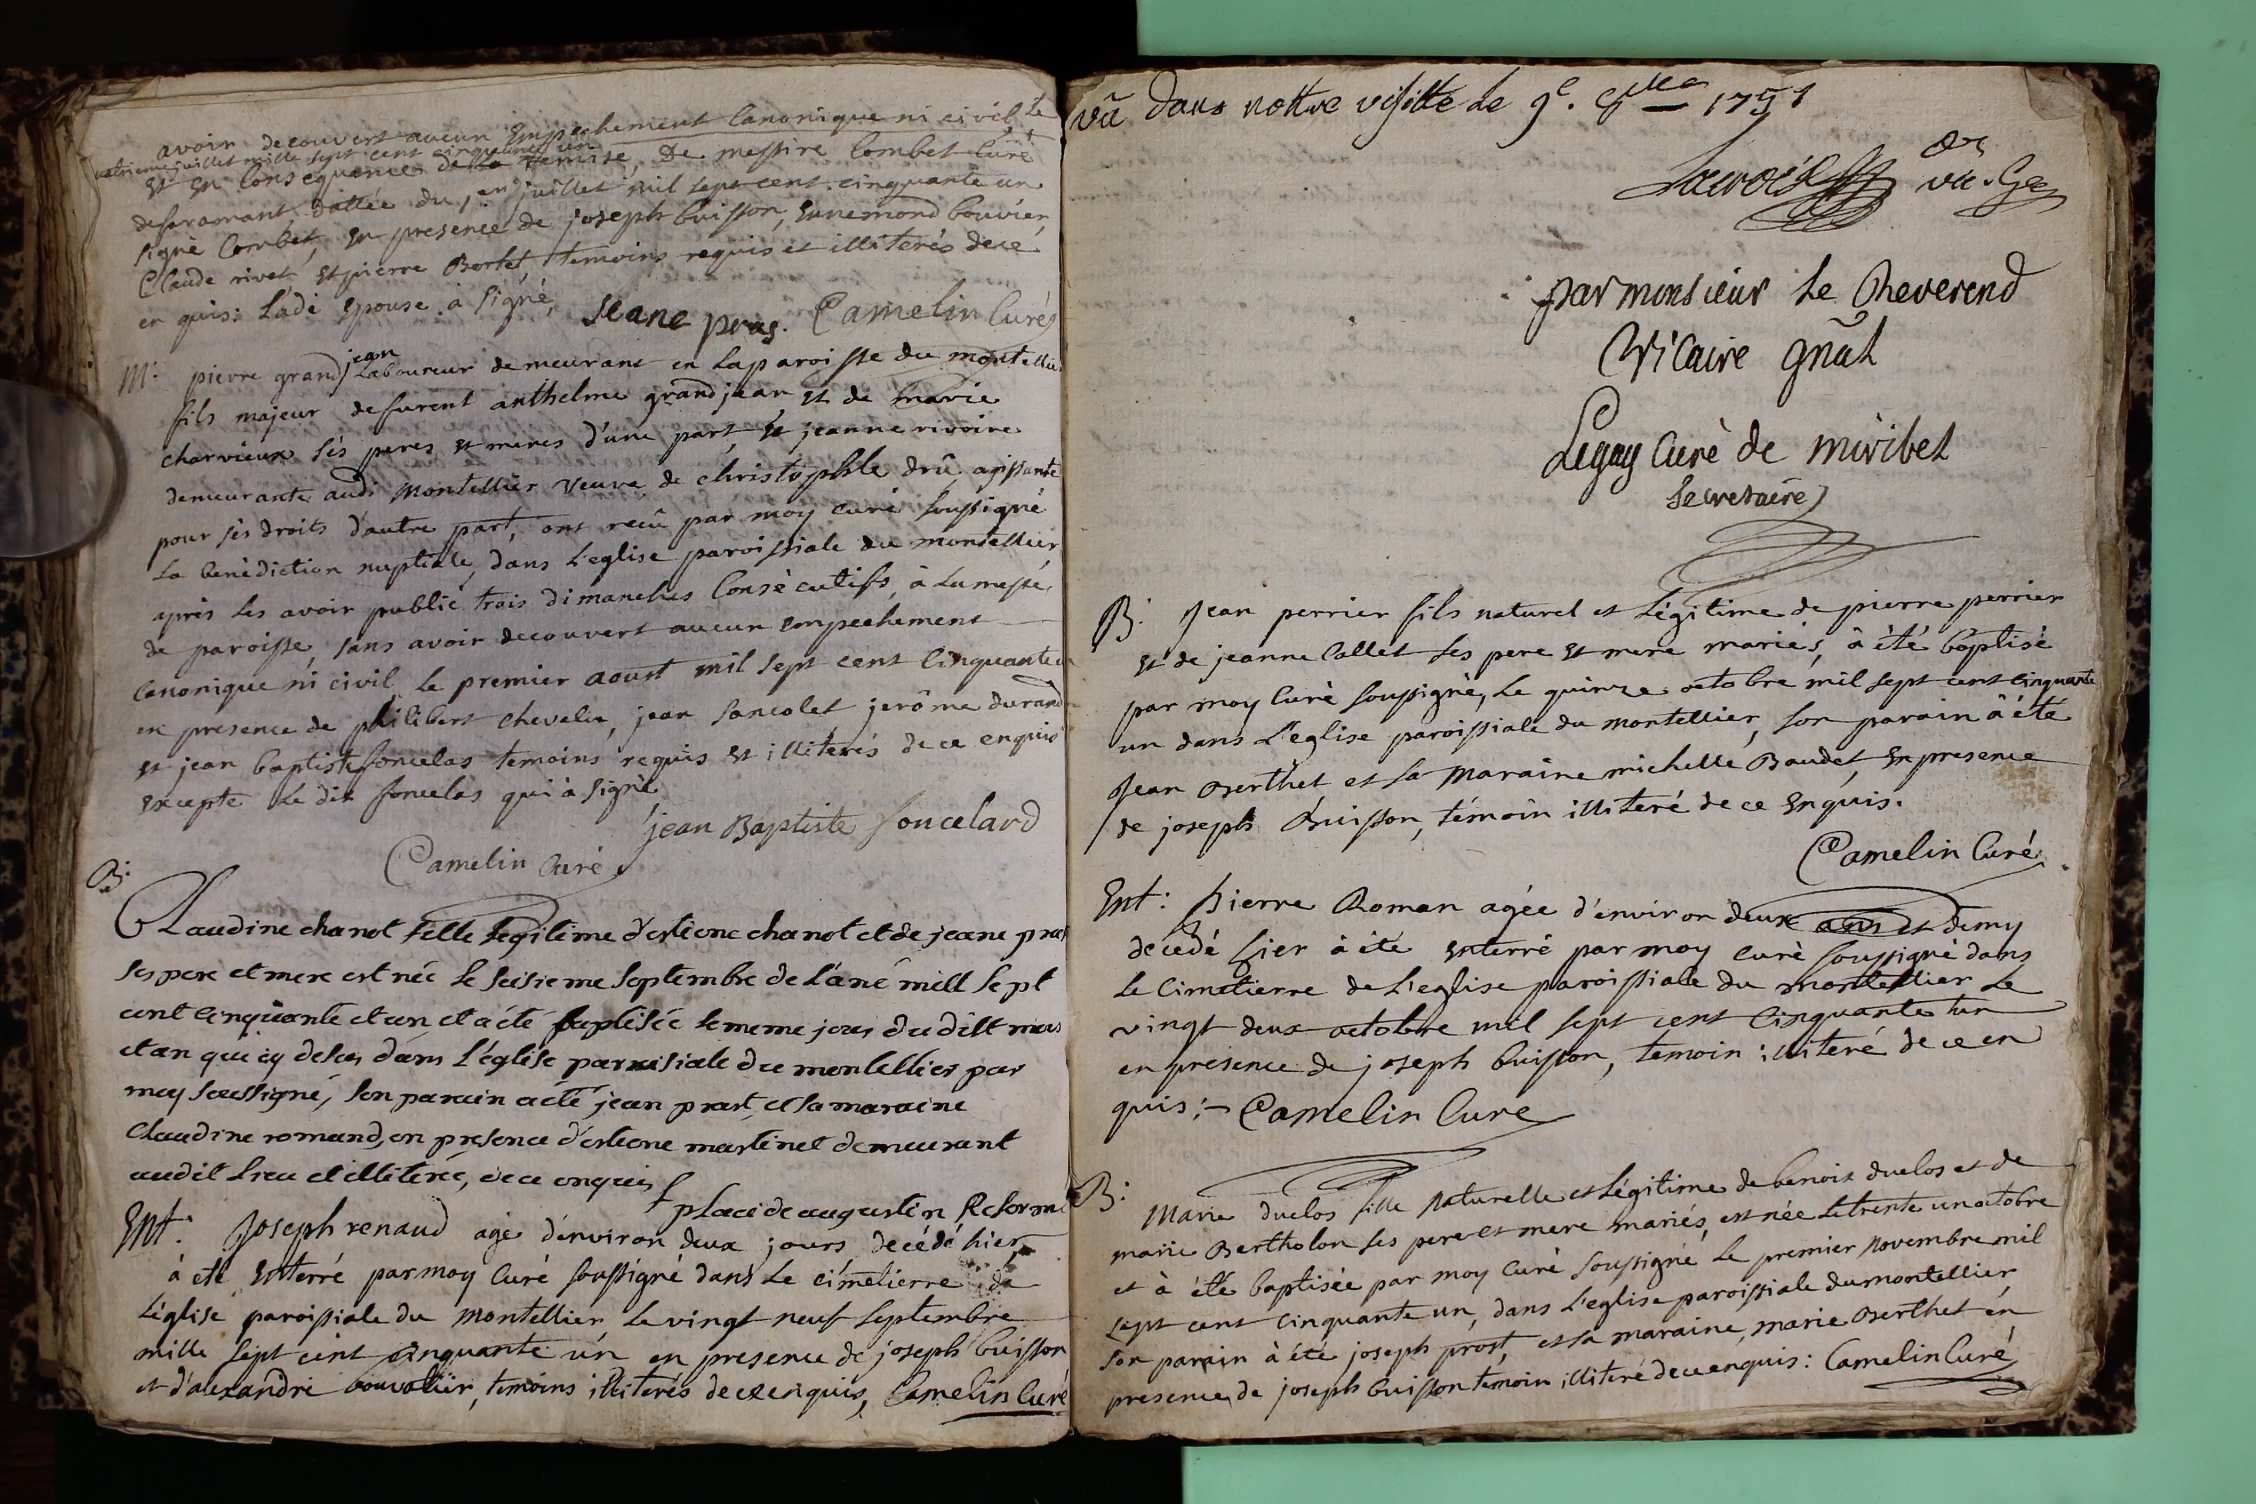 avoir decouvert aucun Empechement Canonique ni civil, Le
juillet mille sept cent cinquante un
et en Consequence de la Remise, De messire Combet Curé
desframant dattée du, en juillet mil sept cent cinquante un
signé Combet, en presence de joseph buisson, Ennemond bouvier,
Claude rivet et pierre Bertet, temoins requis et illiterés de ce
en quis: Ladi Epouse à signé,
Jeane pras. Camelin Curé
M: pierre grand jean Laboureur demeurant en La paroisse du montellier
fils majeur de furent anthelme grandjean et de marie
charvieux sés peres et meres d'une part, et jeanne rivoire
demeurante audi Montellier veuve de christophle drû, agissante
pour sés droits d'autre part, ont recû par moy curé soussigné
La benédiction nuptiale, dans L'eglise paroissiale du montellier
aprés Les avoir publié trois dimanches Consécutifs, à La messe
de paroisse, sans avoir decouvert aucun Empechement
Canonique ni civil, Le premier aoust mil sept cent Cinquante
en presence de philibert chevelu, jean soncolet jerôme durand
et jean baptiste soncelas temoins requis et illiterés de ce enquis
Excepte Le dit soncelas qui à signé
jean Baptiste soncelard
Camelin Curé
B:
Claudine chanot fille Legitime d'estiene chanot et de jeane prast
ses pere et mere est née le seisieme septembre de L'ané mill sept
cent cenquante et un et a été baptisée le meme jour du dilt mois
et an que cy desus dans L'église paroisiale du montellier par
moy soussigné, son parain a été jean prast, et sa maraine
claudine romand, en presence d'estiene martinet demeurant
audit Lieu et illiteré, de ce enquis
placide augustin Reforme
Ent: Joseph renaud agé d'environ deux jours decédé hier,
à eté Enterré par moy Curé soussigné dans Le cimetierre de
L'église paroissiale du Montellier, Le vingt neuf septembre
mille sept cent cinquante un en presence de joseph buisson
et d'alexandre bouvolier, temoins illiterés de ce enquis, Camelin Curé
vû dans nottre visitte Le 9e. 1751
vic. Ge
par monsieur Le Reverend
Vicaire gñal
Legay Curé de miribel
Secretaire
B: Jean perrier fils naturel et Légitime de pierre perrier
et de jeanne Collet ses pere et mere mariés, à été baptisé
par moy Curé soussigné, Le quinze octobre mil sept cent cinquante
un dans L'eglise paroissiale du montellier, son parain à été
Jean Berthet et sa Maraine michelle Baudet, En presence
de joseph Buisson, témoin illiteré de ce Enquis.
Camelin Curé
Ent: Pierre Roman agée d'environ deux ans et demy
decedé hier à été Enterré par moy curé soussigné dans
Le Cimetierre de L'eglise paroissiale du montellier Le
vingt deux octobre mil sept cent Cinquante un
en presence de joseph buisson, temoin illiteré de ce en
quis:- Camelin Cure
B: Marie duclos fille Naturelle et Légitime de benoit duclos et de
marie Bertholon ses pere et mere mariés, est née Le trente un octobre
et à été baptisée par moy Curé soussigné Le premier Novembre mil
sept cent Cinquante un, dans L'eglise paroissiale du montellier,
son parain à été joseph prost, et sa maraine, marie Berthet en
presence de joseph buisson temoin illiteré de ce enquis: Camelin Curé